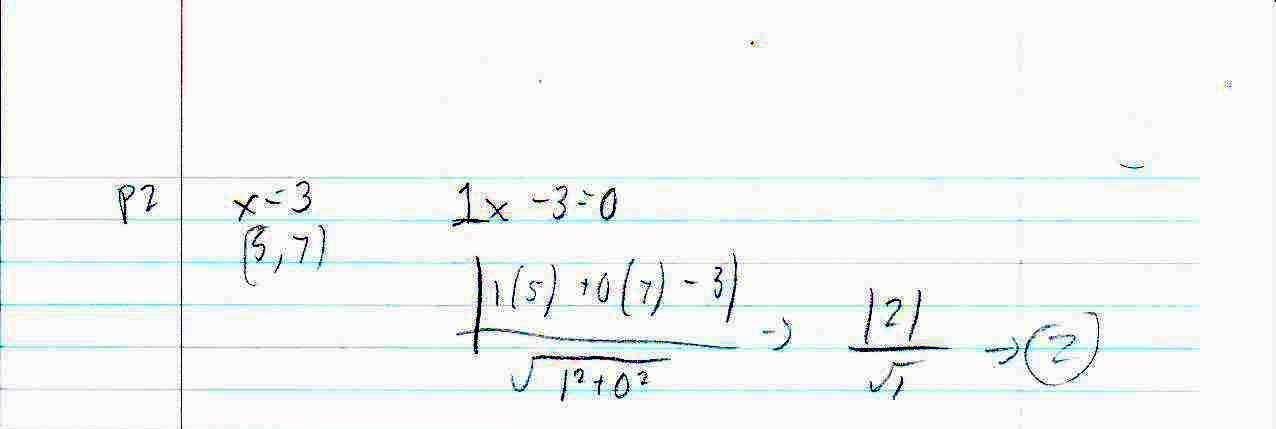 P2 x=3 1x -3=0
(5,7)
|1(5) +0(7) - 3| / √(1²+0²) → |2| / √1 → 2